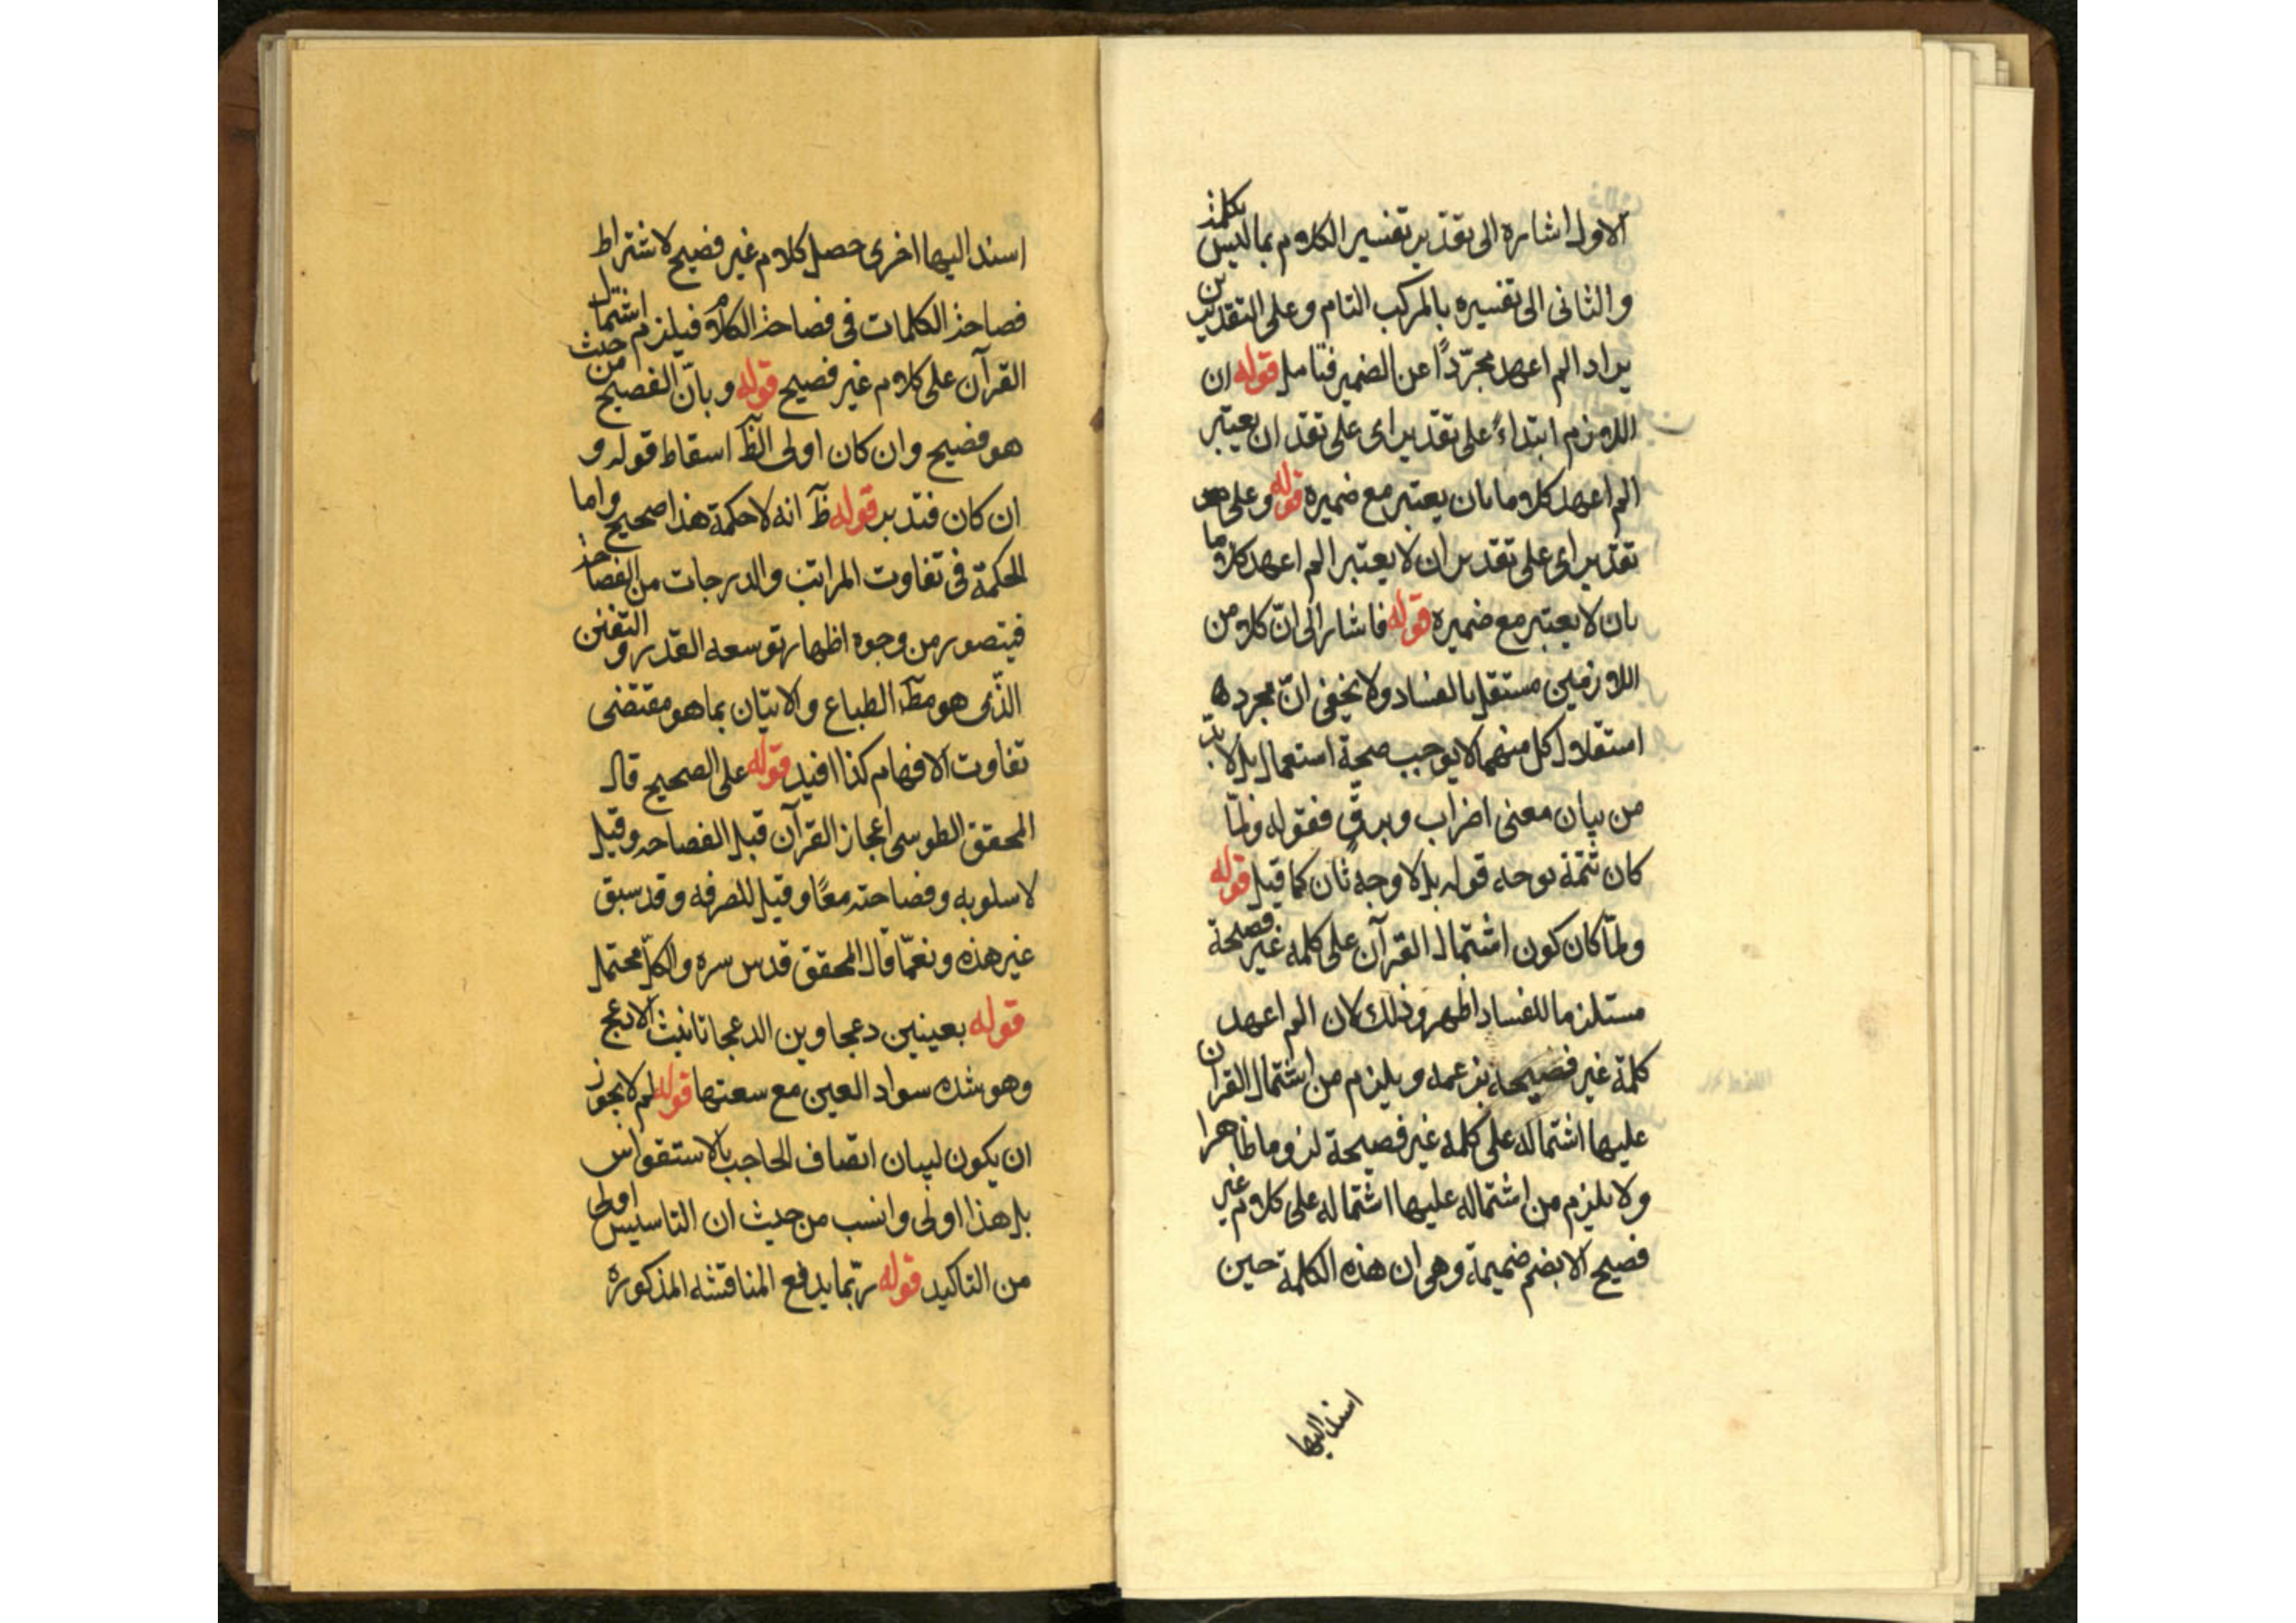 الاول اشارة الى تقدير تفسير الكلام بما ليس بكلمة
والثانى الى تفسيره بالمركب التام وعلى التقديرين
يراد الم اعهد مجرّدًا عن الضمير فتامل قوله ان
اللازم ابتداءً على تقدير اى على تقد ان يعتبر
الم اعهد كلاما بان يعتبر مع ضميره قوله وعلى
تقدير اى على تقدير ان لا يعتبر الم اعهد كلاما
بان لا يعتبر مع ضميره قوله فاشار الى انّ كلا من
اللازمين مستقل بالفساد ولا يخفى انّ مجرد
استقلال كل منهما لا يوجب صحة استعمال بل لا بدّ
من بيان معنى اضراب وبرقٍّ فقوله ولمّا
كان تتمة توجه قوله بل لا وجه ثان كما قيل قوله
ولمّا كان كون اشتمال القرآن على كلمه غير فصيحة
مستلزما للفساد اظهر وذلك لان الم اعهد
كلمة غير فصيحة بزعمه ويلزم من اشتمال القران
عليها اشتماله على كلمه غير فصيحة لزوما ظاهرا
ولا يلزم من اشتماله عليها اشتماله على كلام غير
فصيح الا بضم ضميمة وهى ان هذه الكلمة حين
اسند اليها
اسند اليها اخرى حصل كلام غير فصيح لاشتراط
فصاحة الكلمات فى فصاحة الكلام فيلزم اشتمال
القرآن على كلام غير فصيح قوله وبانّ الفصيح من حيث
هو فصيح وان كان اولى الظّ اسقاط قوله و
ان كان فتدبر قوله ظّ انه لا حكمة هذا صحيح واما
الحكمة فى تفاوت المراتب والدرجات من الفصاحة
فيتصور من وجوه اظهار توسعه القدر و التفنن
الذّى هو مظّ الطباع والاتيان بما هو مقتضى
تفاوت الافهام كذا افيد قوله على الصحيح قال
المحقق الطوسى اعجاز القرآن قيل الفصاحه وقيل
لاسلوبه وفصاحته معًا وقيل للصرفه وقد سبق
غير هذه ونعمّا قال المحقق قدس سره والكلّ محتمل
قوله بعينين دعجاوين الدعجا تانيث الادعج
وهو شده سواد العين مع سعتها قوله لم لا يجوز
ان يكون لبيان اتصاف الحاجب بالاستقواس
بل هذا اولى وانسب من حيث ان التاسيس اولى
من التاكيد قوله ربّما يدفع المناقشه المذكوره